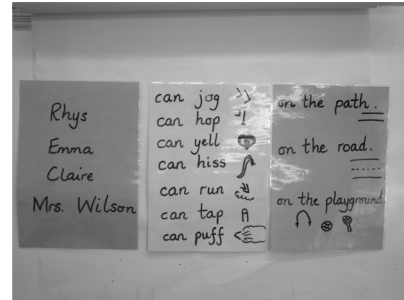 Rhys
Emma
Claire
Mrs. Wilson
can jog
can hop
can yell
can hiss
can run
can tap
can puff
on the path.
on the road.
on the playground